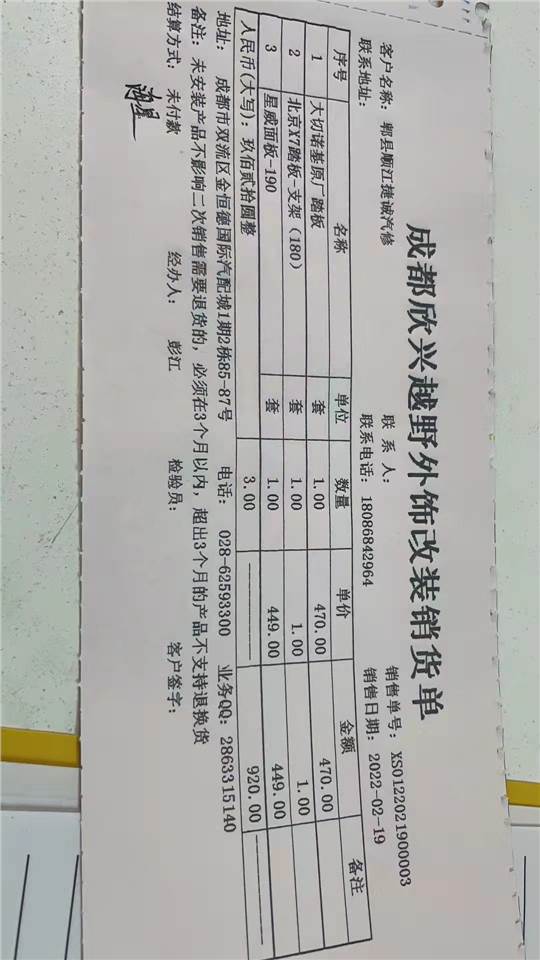 成都欣兴越野外饰改装销货单
客户名称: 郫县顺江捷诚汽修 联 系 人: 销售单号: XS0122021900003
联系地址: 联系电话: 18086842964 销售日期: 2022-02-19
序号 名称 单位 数量 单价 金额 备注
1 大切诺基原厂踏板 套 1.00 470.00 470.00
2 北京X7踏板-支架(180) 套 1.00 1.00 1.00
3 星威面板-190 套 1.00 449.00 449.00
人民币(大写): 玖佰贰拾圆整 3.00 920.00
地址: 成都市双流区金恒德国际汽配城1期2栋85-87号 电话: 028-62593300 业务QQ: 2863315140
备注: 未安装产品不影响二次销售需要退货的, 必须在3个月以内, 超出3个月的产品不支持退换货
结算方式: 未付款 经办人: 彭江 检验员: 客户签字: